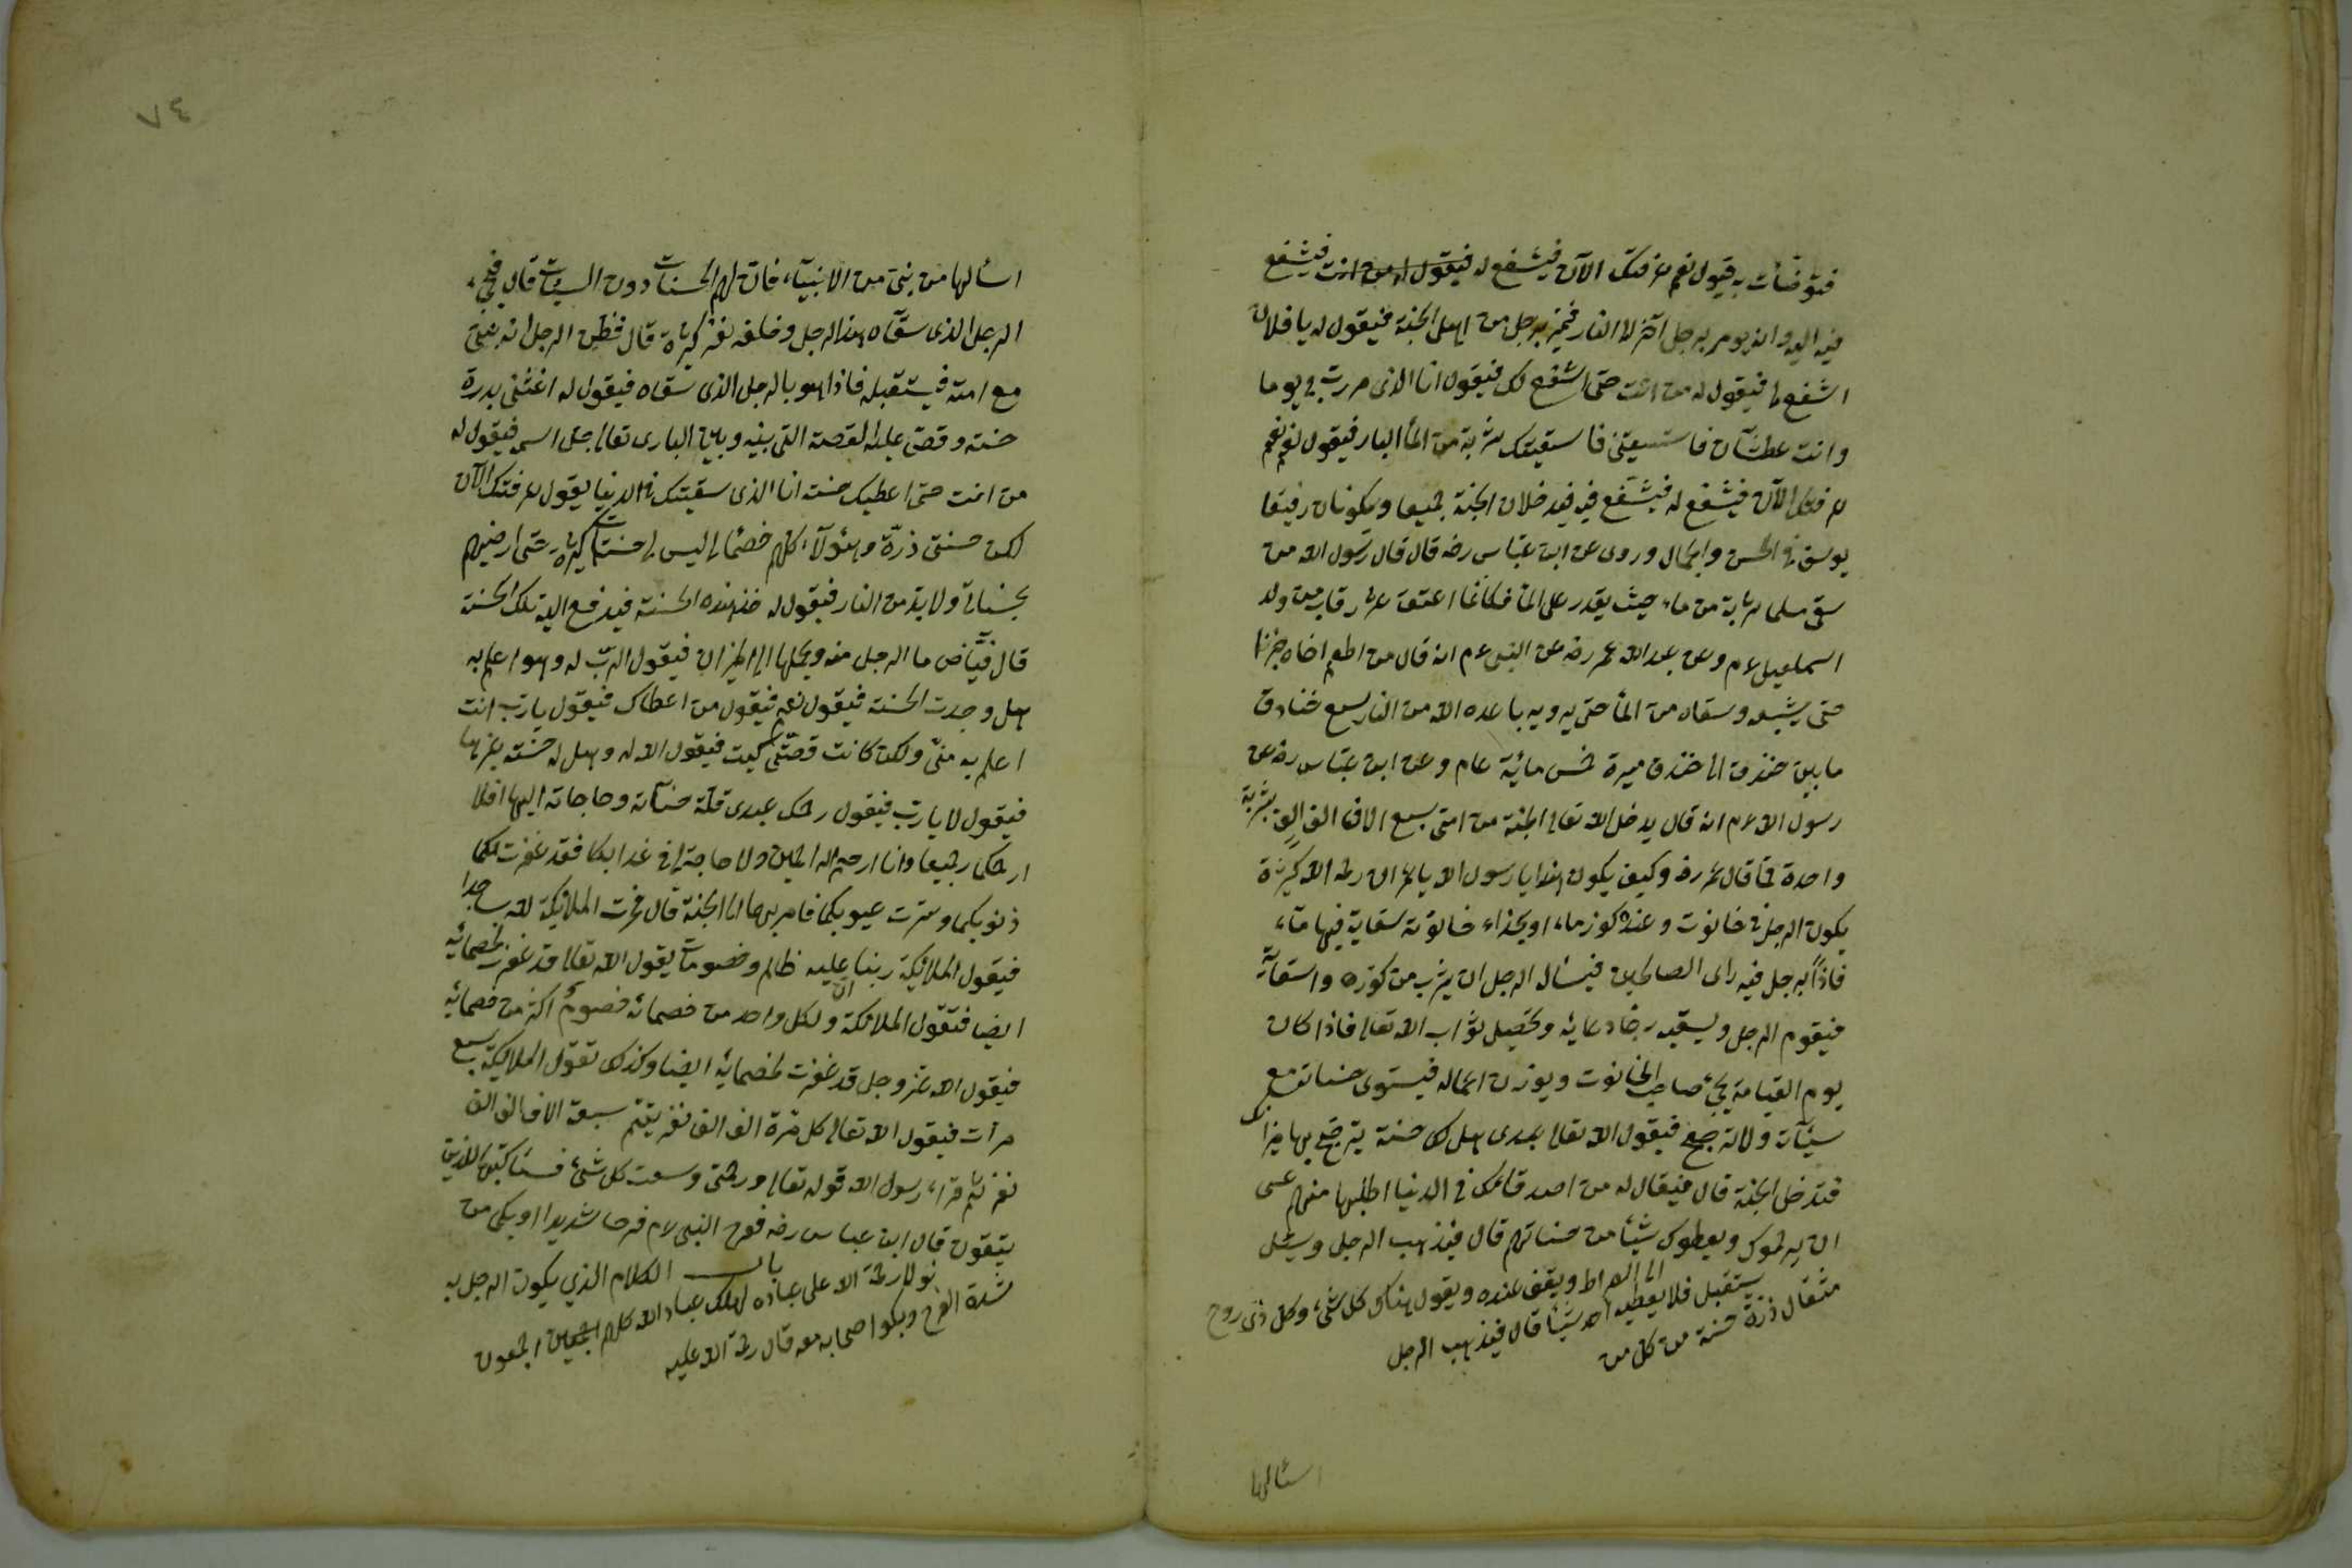 فتوضأت به فيقول نعم عرفتك الآن فيشفع له فيقول له من انت فيشفع
فيه اليه وانه يومر برجل آخر الى النار فيمر برجل من اهل الجنة فيقول له يا فلان
اشفع لى فيقول له من انت حتى اشفع لك فيقول انا الذى مررت بى يوما
وانت عطشان فاستسقيتنى فاسقيتك شربة من الماء البارد فيقول نعم نعم
عرفتك الآن فيشفع له فيشفع فيه فيدخلان الجنة جميعا ويكونان رفيقا
يوسف فى الحسن والجمال وروى عن ابن عباس رضه قال قال رسول الله من
سقى مسلما شربة من ماء حيث يقدر على الماء فكانما اعتق عشر رقاب من ولد
اسمعيل عم وعن عبد الله عمر رضه عن النبى عم انه قال من اطعم اخاه خبزا
حتى يشبعه وسقاه من الماء حتى يرويه باعده الله من النار سبع خنادق
ما بين خندق الى خندق مسيرة خمس مائة عام وعن ابن عباس رضه عن
رسول الله عم انه قال يدخل الله تعالى الجنة من امتى سبع الاف الف الف بشربة
واحدة فقال عمر رضه وكيف يكون هذا يا رسول الله يا عمر ان رحمة الله كثيرة
يكون الرجل فى حانوت وعنده كوز ماء او بحذاء حانوته سقاية فيها ماء
فاذا برجل فيه راى الصالحين فيسأل الرجل ان يشرب من كوزه واسقاية
فيقوم الرجل ويسقيه رجاء دعائه وتحصيل ثواب الله تعالى فاذا كان
يوم القيامة يجئ صاحب الحانوت ويوزن اعماله فيستوى حسناته مع
سيئآته ولا ترجح فيقول الله تعالى عبدى هل لك حسنة يترجح بها ميزانك
فتدخل الجنة قال فيقال له من اصدقائك فى الدنيا اطلبها منهم عسى
ان يرحموك ويعطوك شيئا من حسناتهم قال فيذهب الرجل ويسئل
مثقال ذرة حسنة من كل من
يستقبل فلا يعطيه احد شيئا قال فيذهب الرجل
الى الصراط ويقف عنده ويقول هناك كل شئ وكل ذى روح
اسئالها
٧٤
اسئالها من نبى من الانبياء فان لهم الحسنات دون السيئات قال فيجئ
الرجل الذى سقاه هذا الرجل وخلفه نفر كثيرة قال فظن الرجل انه نبى
مع امته فيستقبله فاذا هو بالرجل الذى سقاه فيقول له اغثنى بدرة
حسنه وقص عليه القصة التى بينه وبين البارى تعالى جل اسمه فيقول له
من انت حتى اعطيك حسنه انا الذى سقيتك فى الدنيا يقول عرفتك الآن
لكن حسنتى ذرة وهؤلآء كلهم خصمائى اليس لى حسنات كثيرة حتى ارضيهم
بحسناتى ولا بد من النار فيقول له خذ هذه الحسنة فيدفع اليه تلك الحسنة
قال الرجل منه ويحملها الى الميزان فيقول الرب له وهو اعلم به
هل وجدت الحسنة فيقول نعم فيقول من اعطاك فيقول يا رب انت
اعلم به منى ولكن كانت قصتى كيت فيقول الله له وهل له حسنة غيرها
فيقول لا يا رب فيقول رحمك عبدى قلة حسناته وحاجاته اليها افلا
ارحمكما جميعا وانا ارحم الراحمين ولا حاجة لى فى عذابكما فقد غفرت لكما
ذنوبكما وسترت عيوبكما فامر بهما الى الجنة قال فخرت الملائكة لله ساجدا
فيقول الملائكة ربنا عليه ظالم وخصومات يقول الله تعالى قد غفرت لخصمائه
ايضا فتقول الملائكة ان ولكل واحد من خصمائه خصوم اكثر من خصمائه
فيقول الله عز وجل قد غفرت لخصمائه ايضا وكذلك تقول الملائكة سبع
مرات فيقول الله تعالى كل مرة الف الف نفر يتم سبعة الاف الف الف
نفر ثم قراء رسول الله قوله تعالى ورحمتى وسعت كل شئ فسأكتبها للذين
يتقون قال ابن عباس رضه ففرح النبى عم فرحا شديدا او بكى من
شدة الفرح وبكوا اصحابه معه قال رحمة الله عليه
نو لا رحمة الله على عباده لهلك عباد الله كلهم اجمعين اجمعون
باب الكلام الذي يكون الرجل به